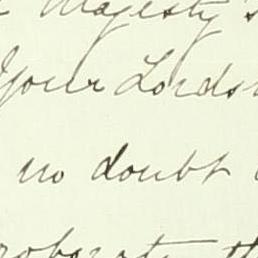 Majesty's
Your Lords
no doubt